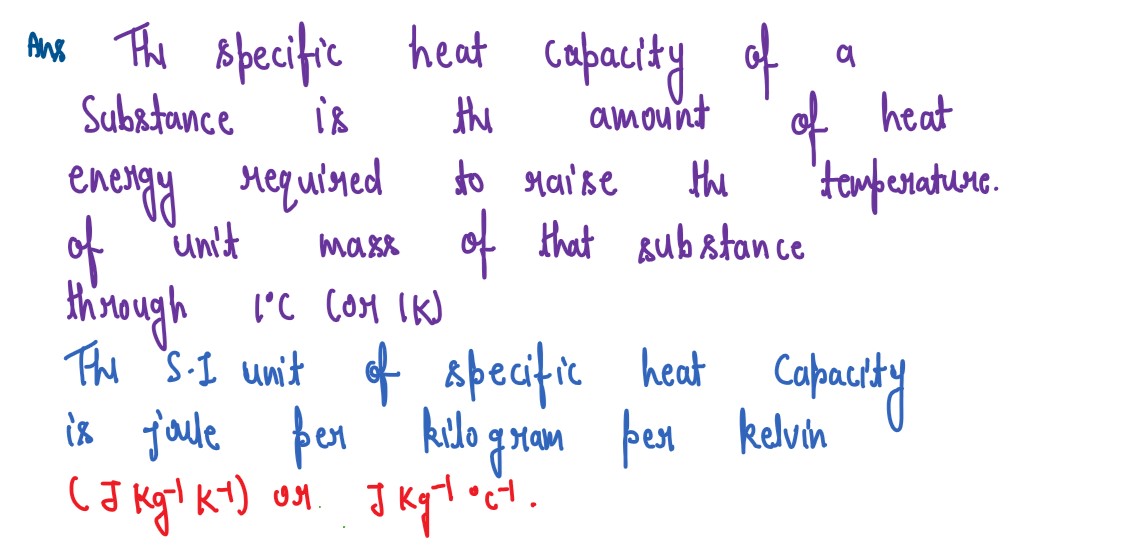 Ans The specific heat capacity of a
Substance is the amount of heat
energy required to raise the temperature.
of unit mass of that substance
through 1°C (or 1K)
The S.I unit of specific heat Capacity
is joule per kilogram per kelvin
(J Kg⁻¹ K⁻¹) or. J Kg⁻¹ °C⁻¹.